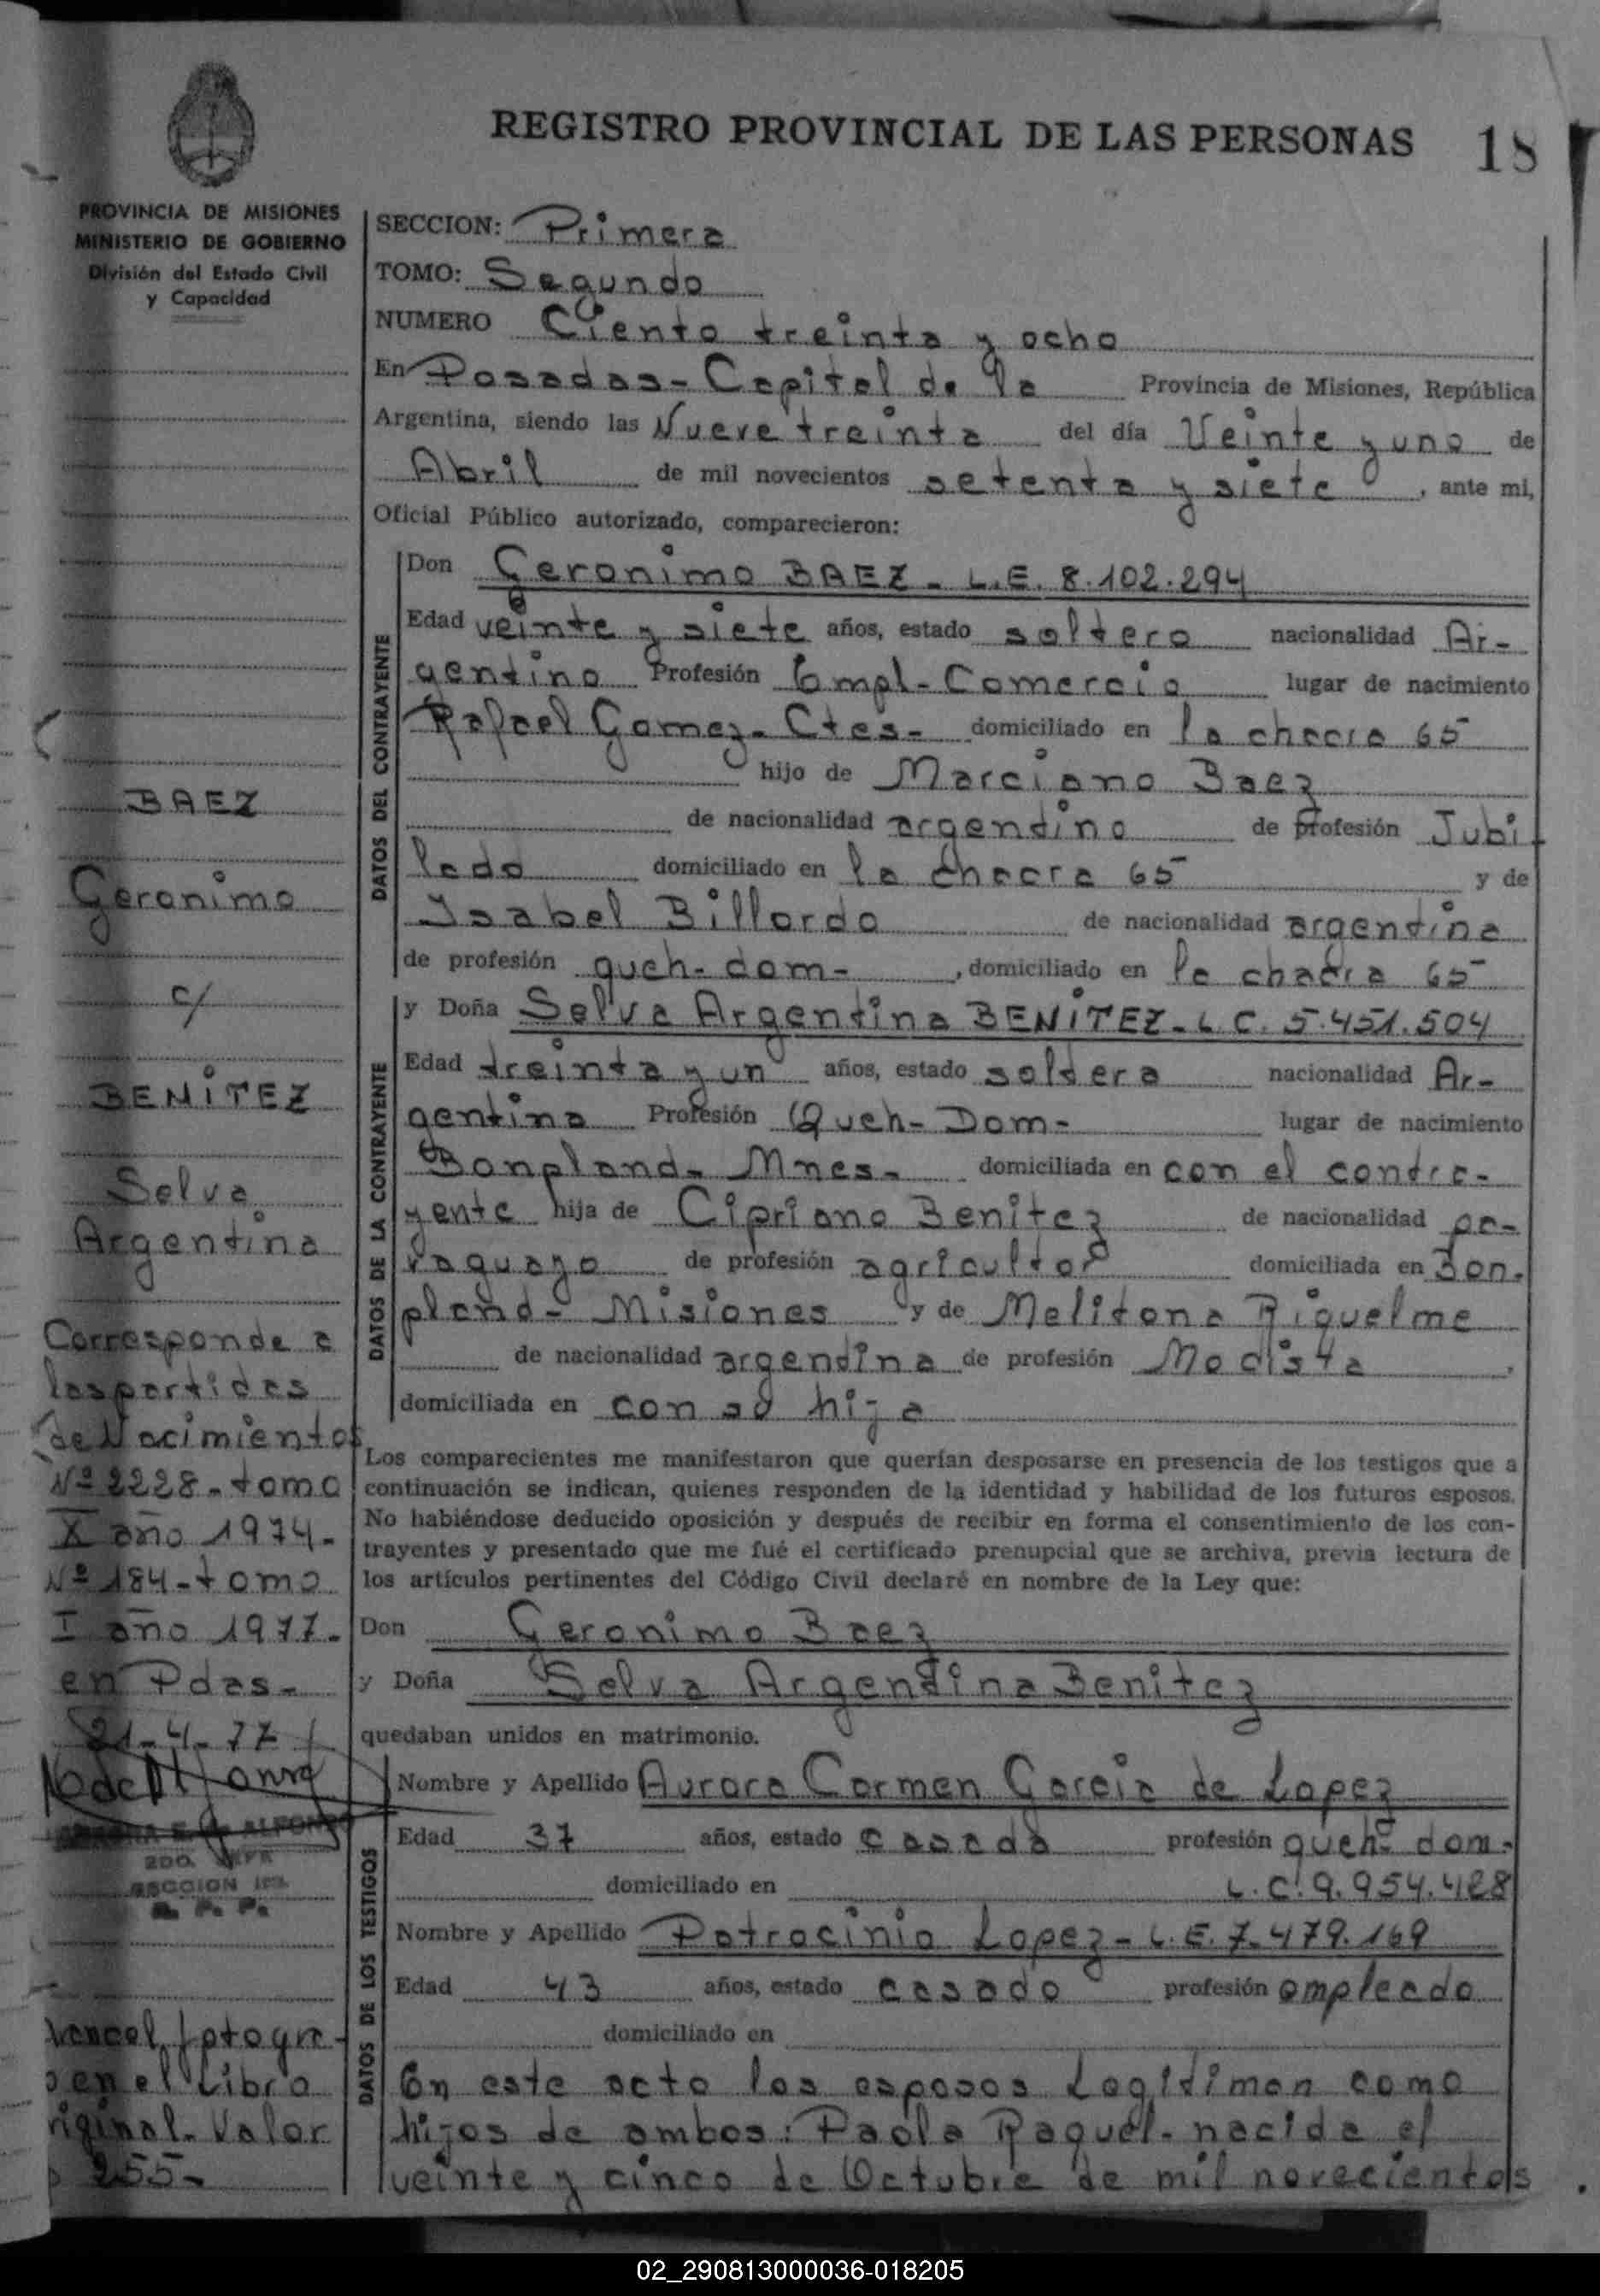 REGISTRO PROVINCIAL DE LAS PERSONAS 18
PROVINCIA DE MISIONES
MINISTERIO DE GOBIERNO
División del Estado Civil
y Capacidad
SECCION: Primera
TOMO: Segundo
NUMERO Ciento treinta y ocho
En Posadas - Capital de la Provincia de Misiones, República
Argentina, siendo las Nueve treinta del día Veinte y uno de
Abril de mil novecientos setenta y siete, ante mi,
Oficial Público autorizado, comparecieron:
DATOS DEL CONTRAYENTE
Don Geronimo BAEZ - L.E. 8.102.294
Edad veinte y siete años, estado soltero nacionalidad Ar-
gentino Profesión Empl-Comercio lugar de nacimiento
Rafael Gomez - Ctes - domiciliado en la chacra 65
hijo de Marciano Baez
de nacionalidad argentino de profesión Jubi
lado domiciliado en la chacra 65 y de
Isabel Billordo de nacionalidad argentina
de profesión queh-dom-, domiciliado en la chacra 65
DATOS DE LA CONTRAYENTE
y Doña Selva Argentina BENITEZ - L C. 5.451.504
Edad treinta y un años, estado soltera nacionalidad Ar-
gentina Profesión Queh-Dom- lugar de nacimiento
Bonpland - Mnes - domiciliada en con el contra-
yente hija de Cipriano Benitez de nacionalidad pa-
raguayo de profesión agricultor domiciliada en Bon-
pland - Misiones y de Melitona Riquelme
de nacionalidad argentina de profesión Modista,
domiciliada en con su hija
Los comparecientes me manifestaron que querían desposarse en presencia de los testigos que a
continuación se indican, quienes responden de la identidad y habilidad de los futuros esposos.
No habiéndose deducido oposición y después de recibir en forma el consentimiento de los con-
trayentes y presentado que me fué el certificado prenupcial que se archiva, previa lectura de
los artículos pertinentes del Código Civil declaré en nombre de la Ley que:
Don Geronimo Baez
y Doña Selva Argentina Benitez
quedaban unidos en matrimonio.
DATOS DE LOS TESTIGOS
Nombre y Apellido Aurora Carmen Garcia de Lopez
Edad 37 años, estado casada profesión queh-dom-
domiciliado en L.C. 9.954.428
Nombre y Apellido Patrocinio Lopez - L.E. 7.479.169
Edad 43 años, estado casado profesión empleado
domiciliado en
En este acto los esposos Legitiman como
hijos de ambos: Paola Raquel - nacida el
veinte y cinco de Octubre de mil novecientos
BAEZ
Geronimo
c/
BENITEZ
Selva
Argentina
Corresponde a
las partidas
de Nacimientos
Nº 2228 - tomo
X año 1974 -
Nº 184 - tomo
I año 1977 -
en Pdas -
21-4-77
ALFONSO
2DO. JEFE
SECCION 1ra.
R. P. P.
fotogra-
en el Libro
riginal - Valor
255 -
02_290813000036-018205